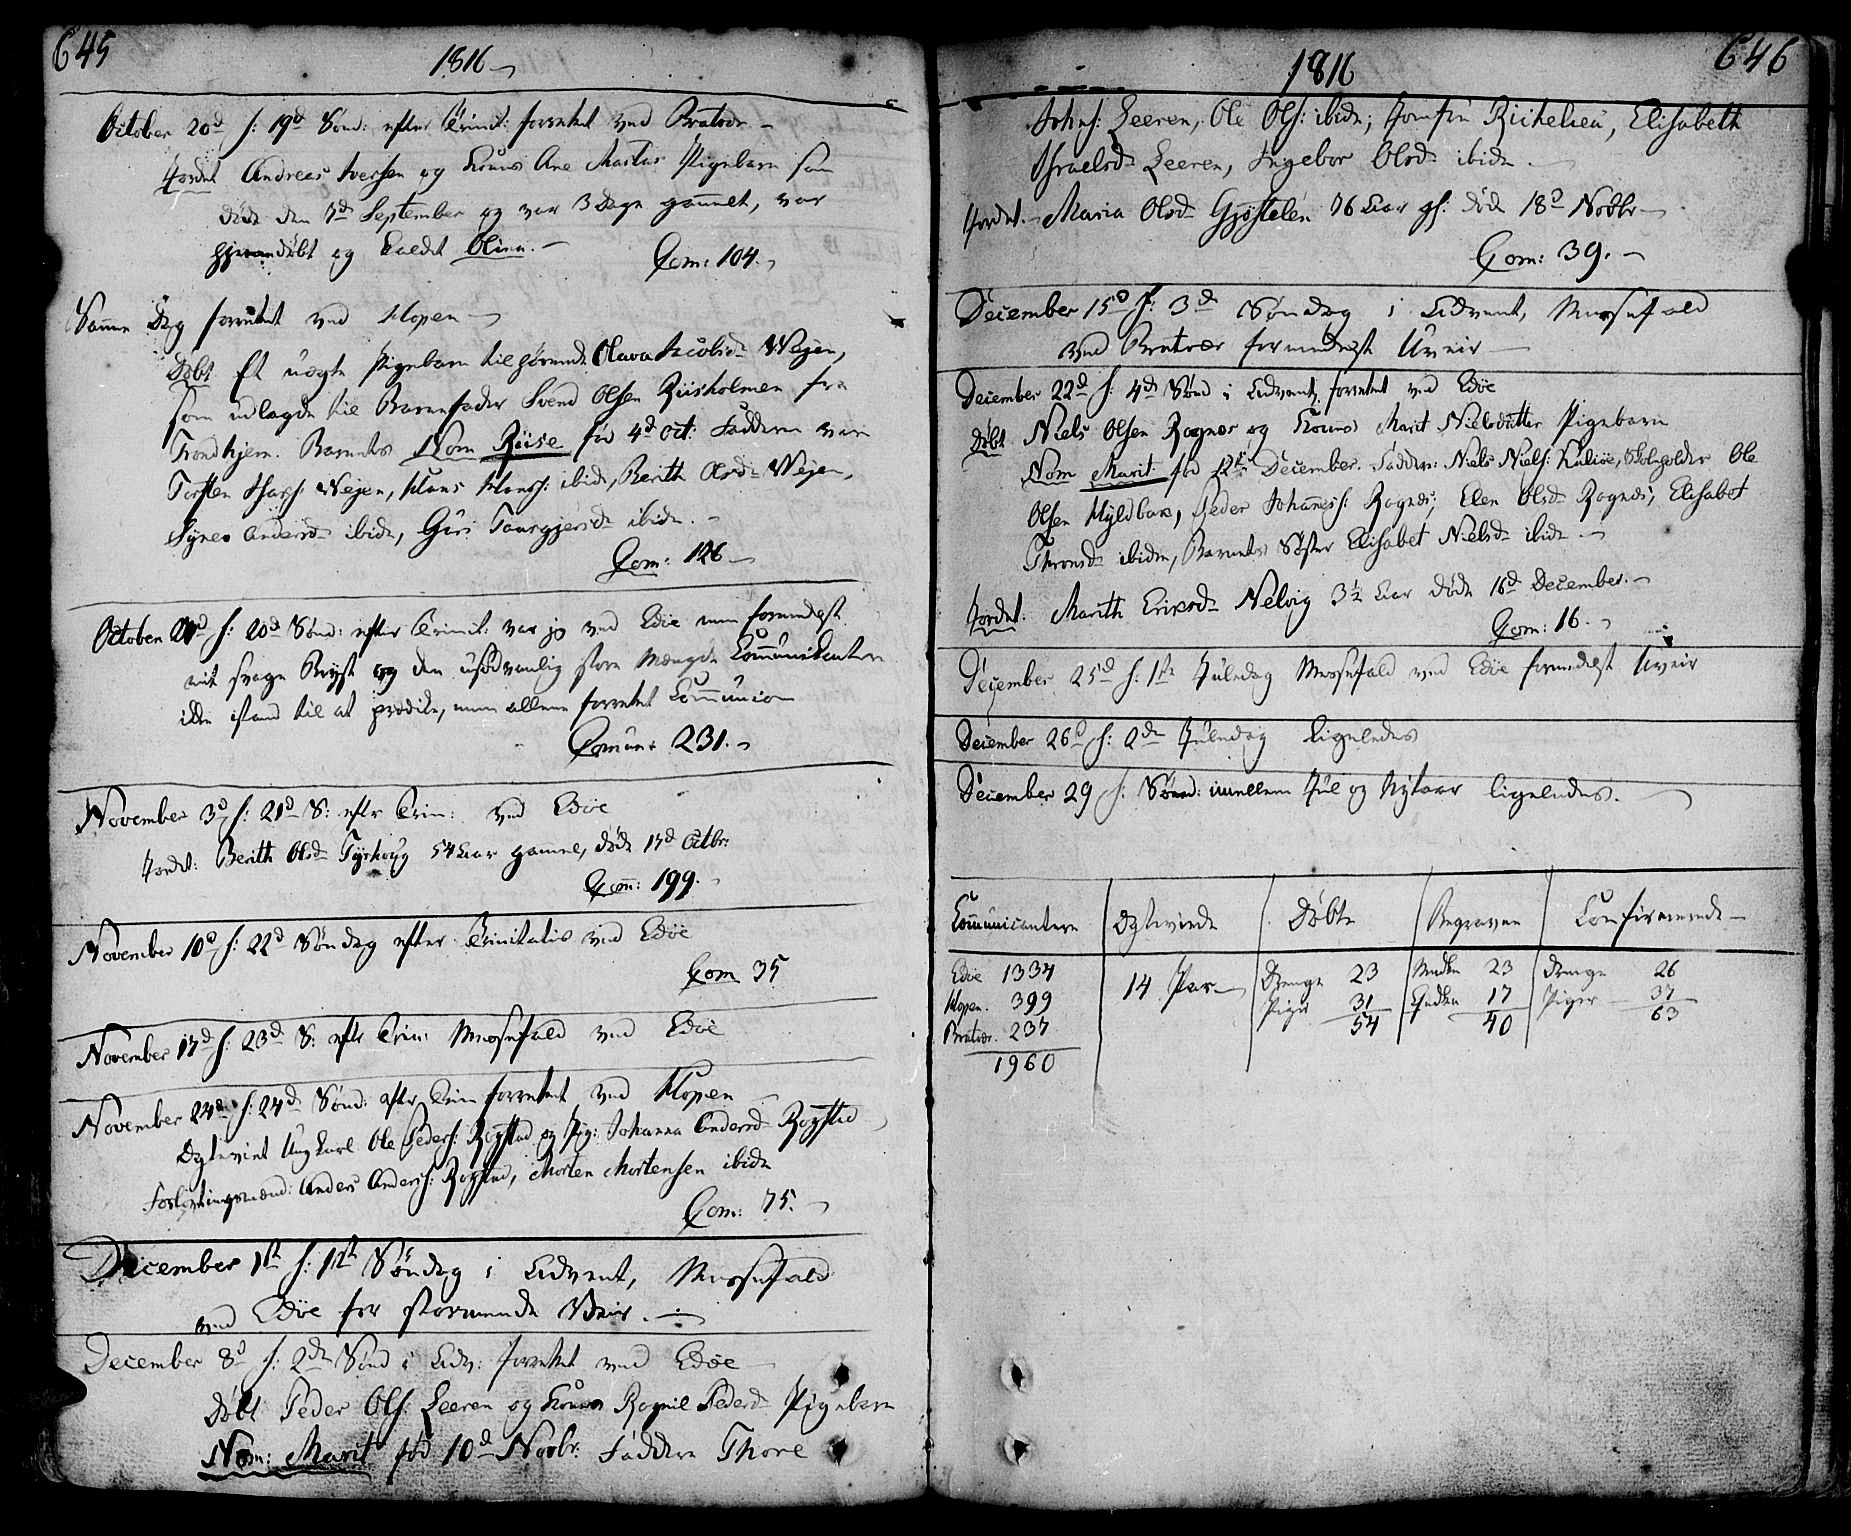 645
1816
October 20d f: 19d Sønd: efter Trinit: forrettet ved Bratvær
Jordet Andreas Iversen og Kones Ane Martas Pigebarn som
døde den 7d September og var 3 Dage gammel, var
hjemmedøbt og kaldt Olina.
Com: 104.
Samme Dag forrettet ved Hopen
Døbt Et uægte Pigebarn tilhørende Olava Jacobsd Wejen,
som udlagde til Barnefader Svend Olsen Riisholmen fra
Trondhjem. Barnets Nom Riise fød 4d Oct: Faddere var
Torsten Hanss: Wejen, Hans Hanss: ibide, Berith Olsd Wejen,
Synev Andersd ibide, Guri Taargjersd ibide.
Com: 126
October 27d f: 20d Sønd: efter Trinit: var jeg ved Edöe men formedelst
mit svage Bryst og den usædvanlig store Mængde Communikantere
ikke istand til at prædike, men allene forrettet Communion
Comun: 231.
November 3d f: 21d S: eftr Trin: ved Edöe
Jordet: Berith Olsd Tyrhoug 54 Aar gamel, døde 17d Octbr:
Com: 199.
November 10d f: 22d Søndag efter Trinitatis ved Edöe
Com 35
November 17d f: 23d S: eftr Trin: Messefald ved Edöe
November 24d f: 24d Sønd: eftr Trin forrettet ved Hopen
Ægteviet Ungkarl Ole Peders: Rogstad og Pig: Johanna Andersd Rogstad
Forlovningsmænd: Anders Anders: Rogstad, Morten Mortensen ibide
Com: 75.
December 1st f: 1st Søndag i Advent, Messefald
ved Edöe for stormende Veir.
December 8d f: 2den Sønd i Adv: forrettet ved Edöe
Døbt Peder Ols: Leeren og Kones Ragnil Pedersd Pigebarn
Nom: Marit fød 10d Novbr. Faddere Thore
646
1816
Johns: Leeren, Ole Ols: ibide; Jomfru Richelieu, Elisabeth
Israelsd Leeren, Ingebor Olsd ibide.
Jordet. Maria Olsd Gjøstelen 76 Aar gl. død 18d Novbr
Com: 39.
December 15d f: 3d Søndag i Advent, Messefald
ved Bratvær formedelst Uveir
December 22d f: 4d Sønd i Advent forrettet ved Edöe
Døbt Niels Olsen Rognæs og Kones Marit Nielsdatter Pigebarn
Nom Marit fød December. Fadder: Niels Niels: Kuliöe, Skoleholder Ole
Olsen Hyldbak, Peder Johaness: Rognæs, Elen Olsd Rognæs, Elisabet
Thronsd ibiden, Barnets Søster Elisabet Nielsd ibide.
Jordet: Marith Eriksd Nelvig 3½ Aar døde 16d December.
Com: 16.
December 25d f: 1ste Juledag Messefald ved Edöe formedelst Uveir
December 26d f: 2den Juledag ligeledes
December 29 f. Sønd: imellem Jul og Nytaar ligeledes.
Communicantere Ægteviede Døbte Begravne Confirmerede
Edöe 1334 14 Par Drenge 23 Mandkn 23 Drenge 26
Hopen. 399 Piger 31 Qvindkn 17 Piger 37
Bratvær. 237 54 40 63
1960